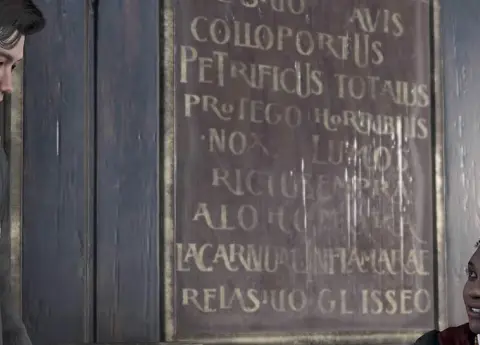 AVIS
COLLOPORTUS
PETRIFICUS TOTALUS
PROTEGO HORRIBILIS
·NOX· LUMOS
RICTUSEMPRA
ALOHOMORA
LACARNUM INFLAMARAE
RELASHIO GLISSEO